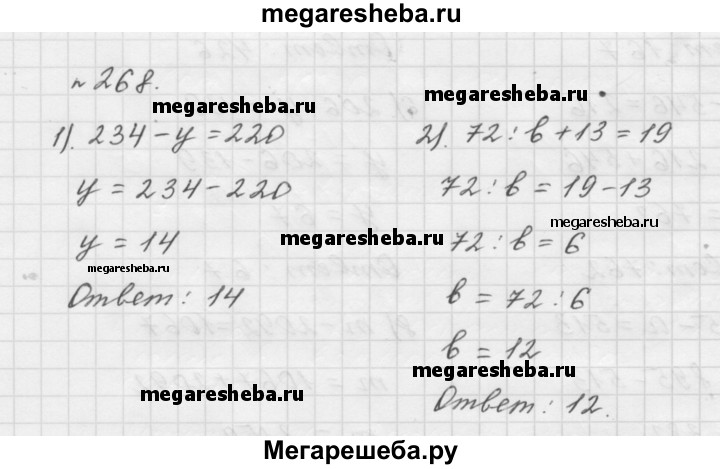 megaresheba.ru
№ 268.
megaresheba.ru
megaresheba.ru
1). 234 - y = 220
y = 234 - 220
y = 14
Ответ: 14
2). 72 : b + 13 = 19
72 : b = 19 - 13
megaresheba.ru
megaresheba.ru
72 : b = 6
megaresheba.ru
b = 72 : 6
b = 12
megaresheba.ru
megaresheba.ru
Ответ: 12.
Мегарешеба.ру